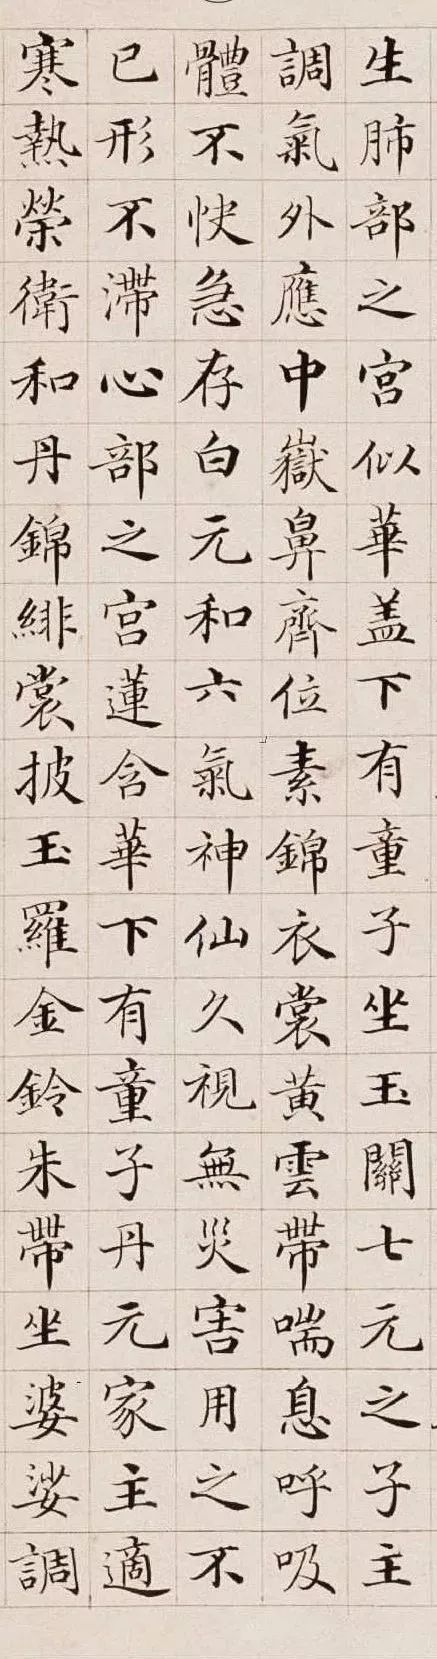 生肺部之宮似華盖下有童子坐玉關七元之子主
調氣外應中嶽鼻齊位素錦衣裳黃雲帶喘息呼吸
體不快急存白元和六氣神仙久視無災害用之不
已形不滞心部之宮蓮含華下有童子丹元家主適
寒熱榮衛和丹錦緋裳披玉羅金鈴朱帶坐婆娑調